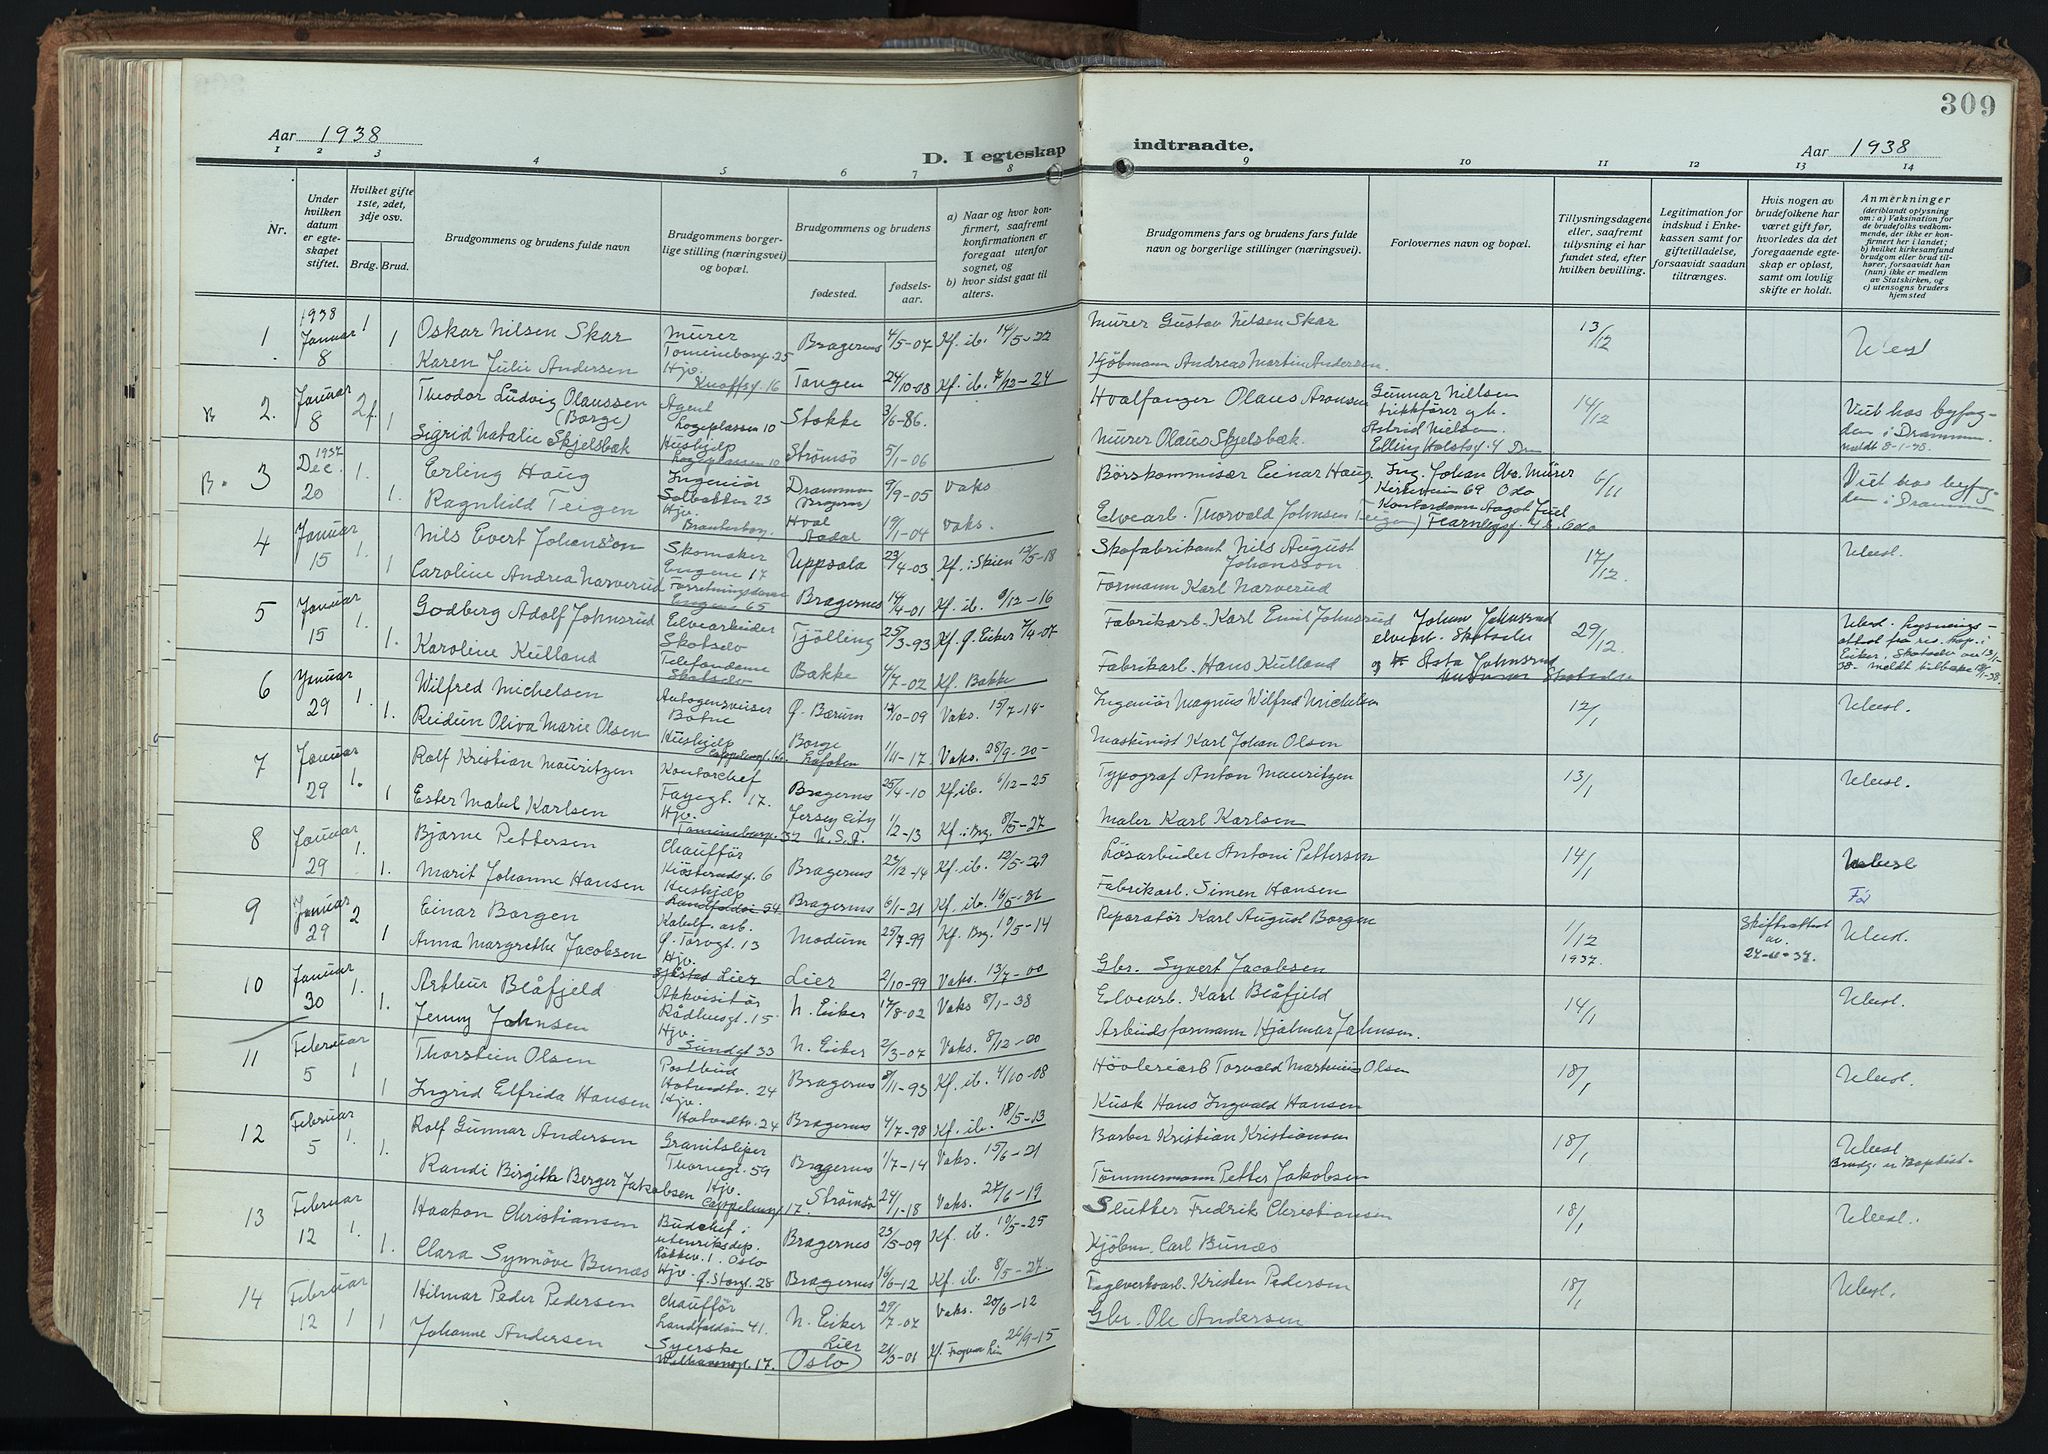 309
Aar 1938
D. I egteskap indtraadte.
Aar 1938
1 2 3 4 5 6 7 8 9 10 11 12 13 14
Nr.
Under hvilken datum er egteskapet stiftet.
Hvilket gifte 1ste, 2det, 3dje osv.
Brdg. Brud.
Brudgommens og brudens fulde navn
Brudgommens borgerlige stilling (næringsvei) og bopæl.
Brudgommens og brudens
fødested.
fødselsaar.
a) Naar og hvor konfirmert, saafremt konfirmationen er foregaat utenfor sognet, og
b) hvor sidst gaat til alters.
Brudgommens fars og brudens fars fulde navn og borgerlige stillinger (næringsvei).
Forlovernes navn og bopæl.
Tillysningsdagene eller, saafremt tillysning ei har fundet sted, efter hvilken bevilling.
Legitimation for indskud i Enkekassen samt for giftetilladelse, forsaavidt saadan tiltrænges.
Hvis nogen av brudefolkene har været gift før, hvorledes da det foregaaende egteskap er opløst, samt om lovlig skifte er holdt.
Anmerkninger
(deriblandt oplysning om: a) Vaksination for de brudefolks vedkommende, der ikke er konfirmert her i landet; b) hvilket kirkesamfund brudgom eller brud tilhører, forsaavidt han (hun) ikke er medlem av Statskirken, og c) utensogns bruders hjemsted
1 1938 Januar 8 1 1 Oskar Nilsen Skar Murer 25 Bragernes 4/5-07 Kf. ib. 14/5-22 Murer Gustav Nilsen Skar 13/12 Utlyst
Karen Julie Andersen Hjv. Knoffsg. 16 Tangen 24/10-08 Kf. ib. 7/12-24 Kjøbmann Andreas Martin Andersen.
B 2. Januar 8 2 f. 1 Theodor Ludvig Olaussen (Borge) Agent Torgeplassen 10 Stokke 3/6-86. Hvalfanger Olaus Aronsen Gunnar Nielsen trikkfører g.h. 14/12 Viet hos byfogden i Drammen. meldt 8-1-38.
Sigrid Natalie Skjelsbæk Hushjelp Strømsø 5/1-06 Murer Olaus Skjelsbæk. Astrid Nielsen. Elling Holstsg. 4 Drm
B. 3 1937 Dec. 20 1. 1. Erling Haug Ingeniør Solbakken 23 Drammen (Bragernes) 9/9-05 Vaks Børskommisær Einar Haug Ing. Johan Chr. Mürer Kirkeveien 69 Oslo 6/11 Viet hos byfogden i Drammen.
Ragnhild Teigen Hjv. Hval Aadal 19/1-04 Vaks. Elvearb. Thorvald Johnsen Teigen Kontordame Aagot Juel Fearnleysg. 4 b. Oslo
4 Januar 15 1. 1 Nils Evert Johansson Skomaker Engene 17 Uppsala 23/4-03 Kf. i Skien 12/5-18 Skofabrikant Nils August Johansson 17/12. Utlyst.
Caroline Andrea Narverud Forretningsdame Engene 65 Bragernes 14/4-01 Kf. ib. 3/12-16 Formann Karl Narverud
5 Januar 15 1. 1. Godberg Adolf Johnsrud Elvearbeider Skotselv Tjølling 25/3-93 Kf. Ø. Eiker 7/4-07 Fabrikarb. Karl Emil Johnsrud Johan Johnsrud elvearb. Skotselv 29/12. Utlyst. Lysningsattest fra res. kap. i Eiker, Skotselv
Karoline Kulland Telefondame Skotselv Bakke 4/7-02 Kf. Bakke Fabrikarb. Hans Kulland og Asta Johnsrud Skotselv
6 Januar 29 1. 1. Wilfred Michelsen Autogensveiser Botne Ø. Bærum 12/10-09 Vaks. 15/7-14 Ingeniør Magnus Wilfred Michelsen 12/1 Utlyst.
Reidun Oliva Marie Olsen Hushjelp Borge Lofoten 1/11-17 Vaks. 28/9-20 Maskinist Karl Johan Olsen
7 Januar 29 1. 1 Rolf Kristian Mauritzen Kontorchef Fayegt. 17. Bragernes 25/4-10 Kf. ib. 6/12-25 Typograf Anton Mauritzen 13/1 Utlyst.
Ester Mabel Karlsen Hjv. 32 Jersey City U.S.A. 1/2-13 Kf. i Brg. 8/5-27 Maler Karl Karlsen
8 Januar 29 1. 1. Bjarne Pettersen Chauffør 6 Bragernes 24/12-14 Kf. ib. 12/5-29 Løsarbeider Antoni Pettersen 14/1 Utlyst
Marit Johanne Hansen Hushjelp Bragernes 6/1-21 Kf. ib. Fabrikarb. Simen Hansen
9 Januar 29 2 1 Einar Borgen Kabelf. arb. Ø. Torvgt. 13 Modum 25/7-99 Kf. Brg. 10/5-14 Reparatør Karl August Borgen 1/12 1937. Skifteattest av. Utlyst.
Anna Margrethe Jacobsen Hjv. Lier Lier 2/10-99 Vaks. 13/7-00 Gbr. Syvert Jacobsen
10 Januar 30 1. 1. Arthur Blåfjeld Akkvisitør Rådhusgt. 15 N. Eiker 17/8-02 Vaks 8/1-38 Elvearb. Karl Blåfjeld 14/1 Utlyst.
Jenny Johnsen Hjv. Sundgt 33 N. Eiker 2/3-07 Vaks. 8/12-00 Arbeidsformann Hjalmar Johnsen.
11 Februar 5 1 1 Thorstein Olsen Postbud Hotvedtv. 24 Bragernes 8/11-93 Kf. ib. 4/10-08 Høvleriarb Torvald Martinius Olsen 18/1 Utlyst.
Ingrid Elfrida Hansen Hjv. Hotvedtv. 24 Bragernes 4/7-98 Kf. ib. 18/5-13 Kusk Hans Ingvald Hansen
12 Februar 5 1. 1. Rolf Gunnar Andersen Granitsliper Thornegt. 59 Bragernes 1/7-14 Vaks. 15/6-21 Barber Kristian Kristiansen 18/1 Utlyst Brudg. er Baptist.
Randi Birgitte Berger Jakobsen Hjv. Cappelensg 17. Strømsø 24/1-18 Vaks. 27/6-19 Tømmermann Petter Jakobsen
13 Februar 12 1. 1. Haakon Christiansen Budchef i utenriksdep. Oslo Bragernes 23/5-09 Kf. ib. 10/5-25 Slutter Fredrik Christiansen 18/1 Utlyst.
Clara Synnøve Bunæs Hjv. Ø. Storgt. 28 Bragernes 16/6-12 Kf. ib. 8/5-27 Kjøbm. Carl Bunæs
14 Februar 12 1 1 Hilmar Peder Pedersen Chauffør Landfaldøen 41. N. Eiker 29/7-07 Vaks. 20/6-12 Teglverksarb. Kristen Pedersen 18/1 Utlyst.
Johanne Andersen Syerske 17. Lier Oslo 21/3-01 Kf. Frogner Lier 26/9-15 Gbr. Ole Andersen